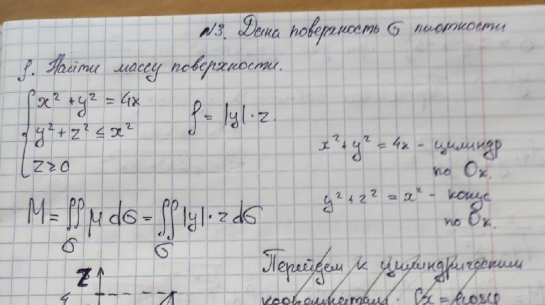 N3. Дана поверхность σ плотности
ρ. Найти массу поверхности.
x² + y² = 4x
y² + z² ≤ x²
z ≥ 0
ρ = |y|·z.
x² + y² = 4x - цилиндр
по Ox.
y² + z² = x² - конус
по Ox.
M = ∬ μ dσ = ∬ |y|·z dσ
σ σ
Перейдем к цилиндрическим
координатам.
z